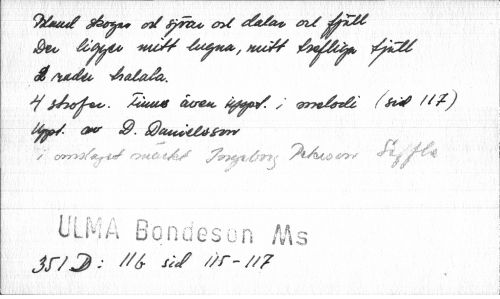 Bland skogar och sjöar och dalar och fjäll
Der ligger mitt lugna, mitt trefliga tjäll
2 rader tralala.
4 strofer. Finns även uppt. i melodi (sid 117)
Uppt. av D. Danielsson
i omslaget märkt Ingeborg
ULMA Bondeson Ms
351 D: 116 sid 115-117